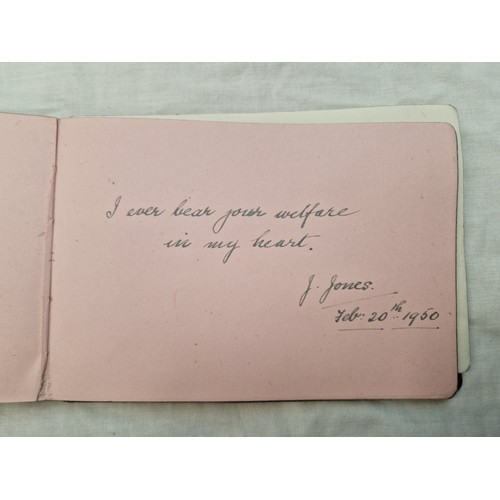 I ever bear your welfare
in my heart.
J. Jones.
Feb. 20th 1950